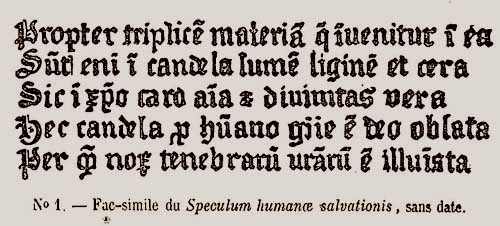 Propter triplicē materiā q̄ īuenitur ī ea
Sūt eni ī candela lumē liginē et cera
Sic ī xp̄o caro aīa ⁊ diuinitas vera
Hec candela ꝓ hūano gn̄e ē deo oblata
Per qm̄ nox tenebrarū urārū ē illuīata
Nº 1. — Fac-simile du Speculum humanæ salvationis, sans date.